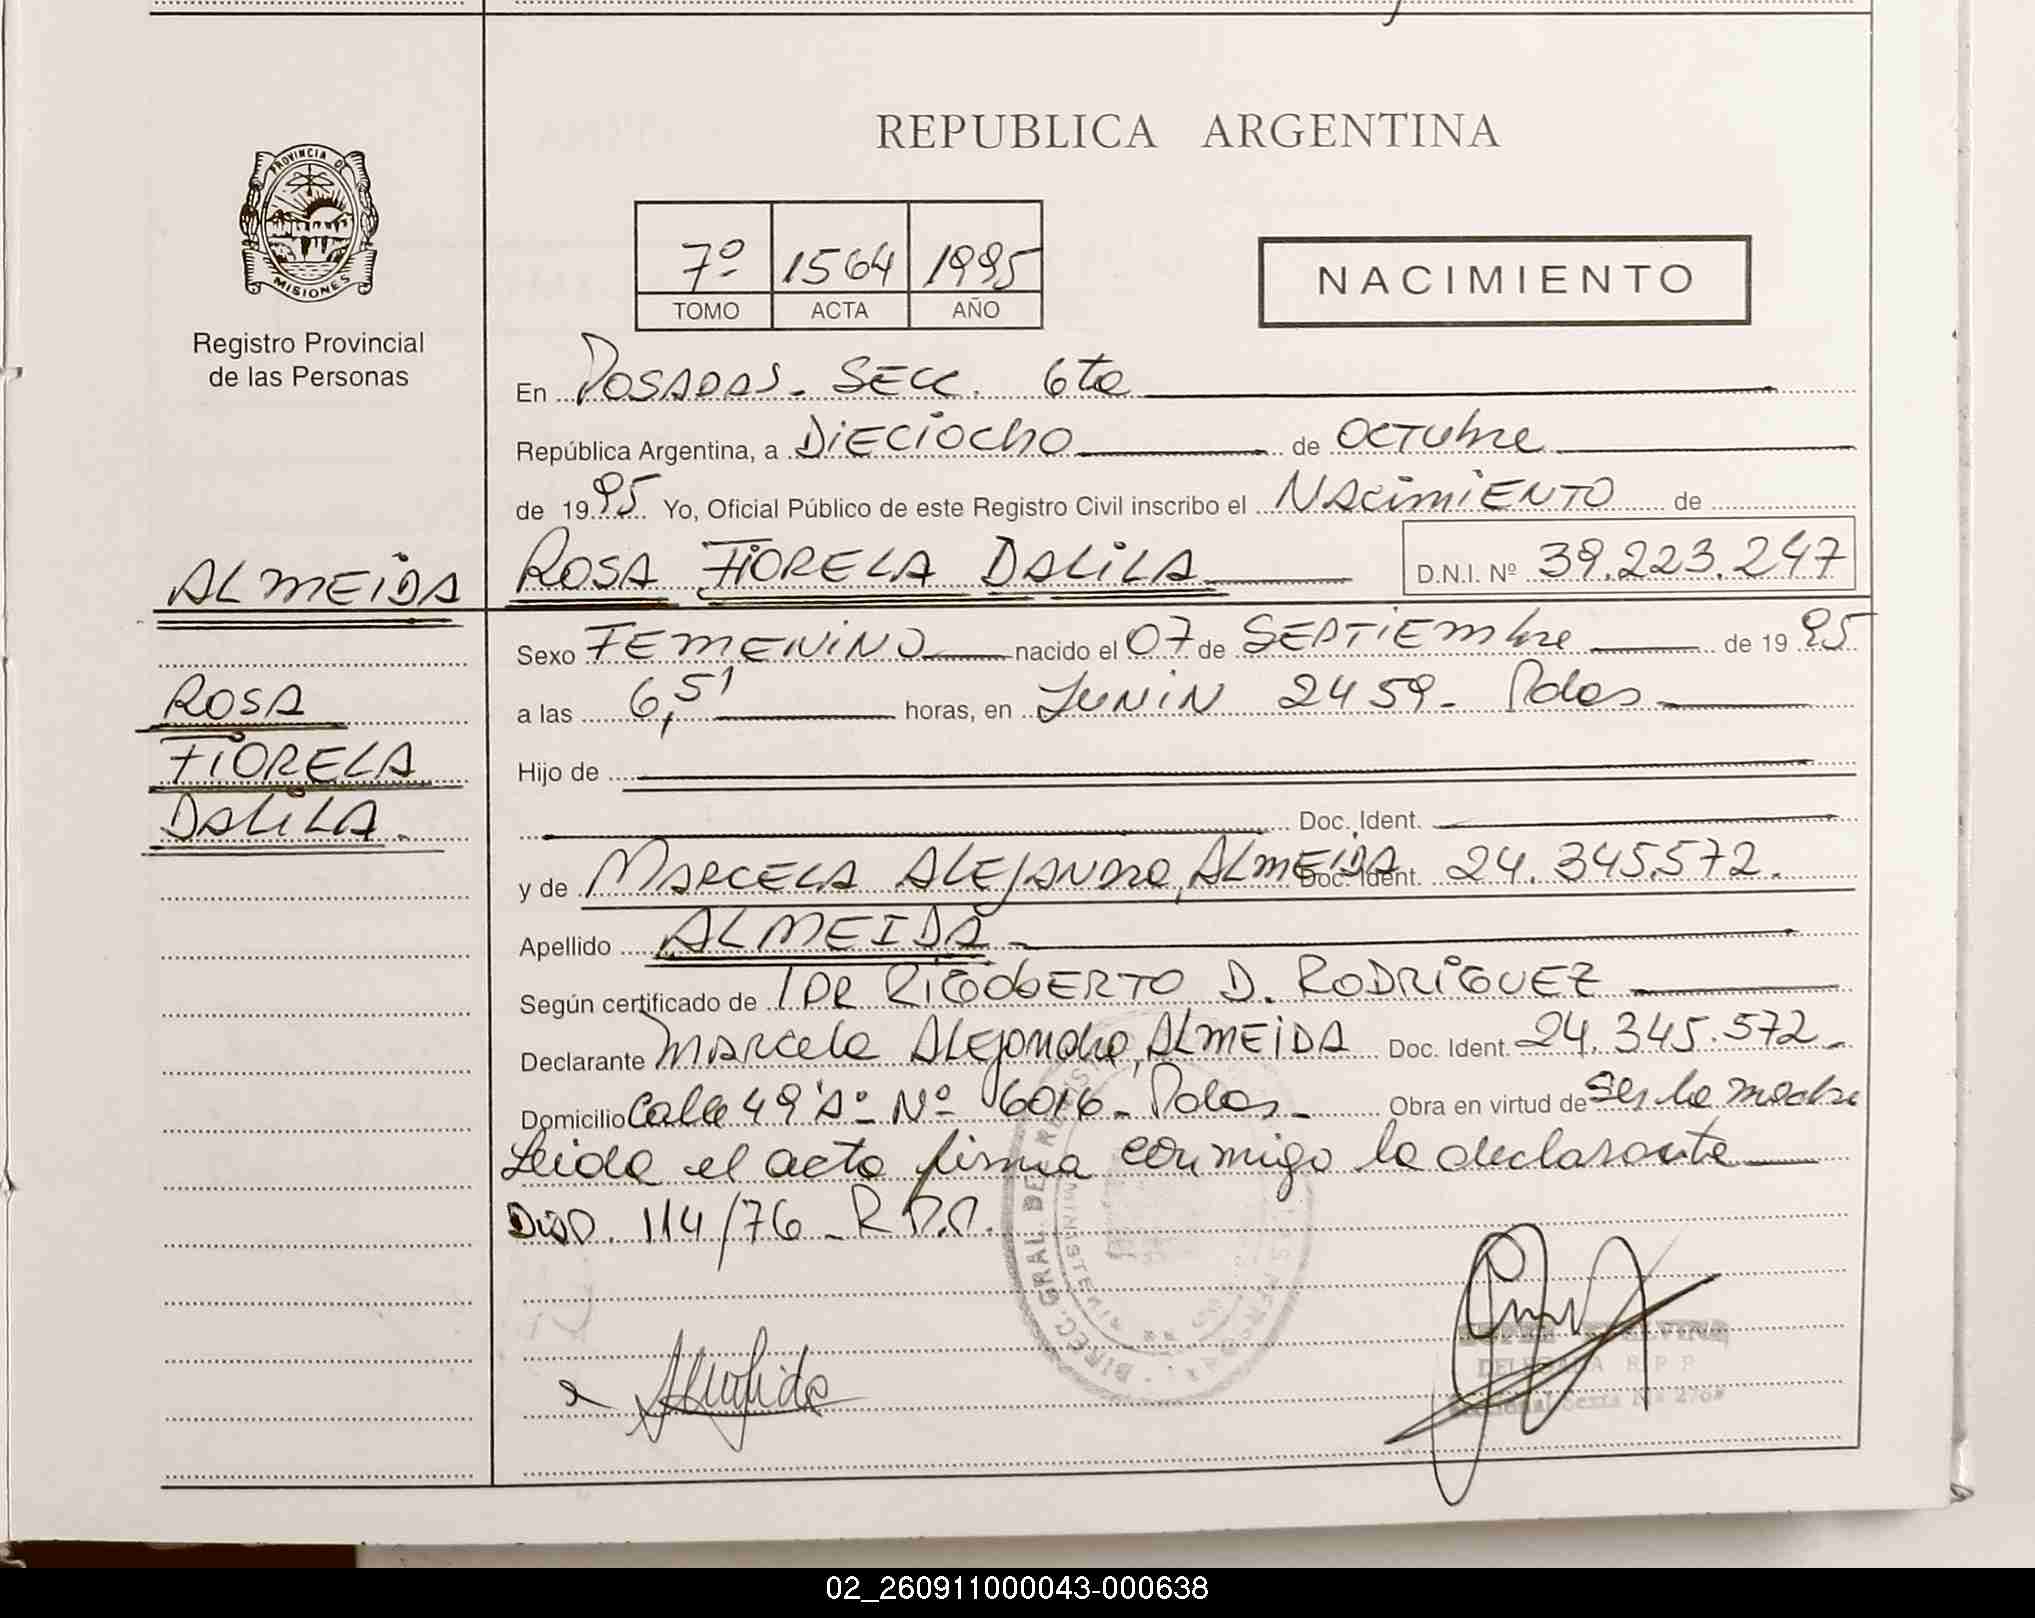 REPUBLICA ARGENTINA
PROVINCIA DE
MISIONES
Registro Provincial
de las Personas
7º 1564 1995
TOMO ACTA AÑO
NACIMIENTO
En POSADAS - SECC. 6ta
República Argentina, a DIECIOCHO de OCTUbre
de 1995 Yo, Oficial Público de este Registro Civil inscribo el NACIMIENTO de
ALMEIDA
ROSA FIORELA DALILA D.N.I. Nº 39.223.247
Sexo FEMENINO nacido el 07 de SEPTIEMbre de 1995
ROSA
a las 6,51 horas, en JUNIN 2459 - Pdas
FIORELA
Hijo de
DALILA.
Doc. Ident.
y de MARCELA ALEJANDRA, ALMEIDA Doc. Ident. 24.345.572.
Apellido ALMEIDA -
Según certificado de DR RIGOBERTO D. RODRIGUEZ
Declarante MARCELA ALEJANDRA, ALMEIDA Doc. Ident. 24.345.572 -
Domicilio Calle 49 "A" Nº 6016 - Pdas - Obra en virtud de ser la madre
Leida el acta firma conmigo la declarante
Disp. 114/76 - R.P.P.
DIREC. GRAL. DE
DELEGADA R P P
Sexta Nº
02_260911000043-000638